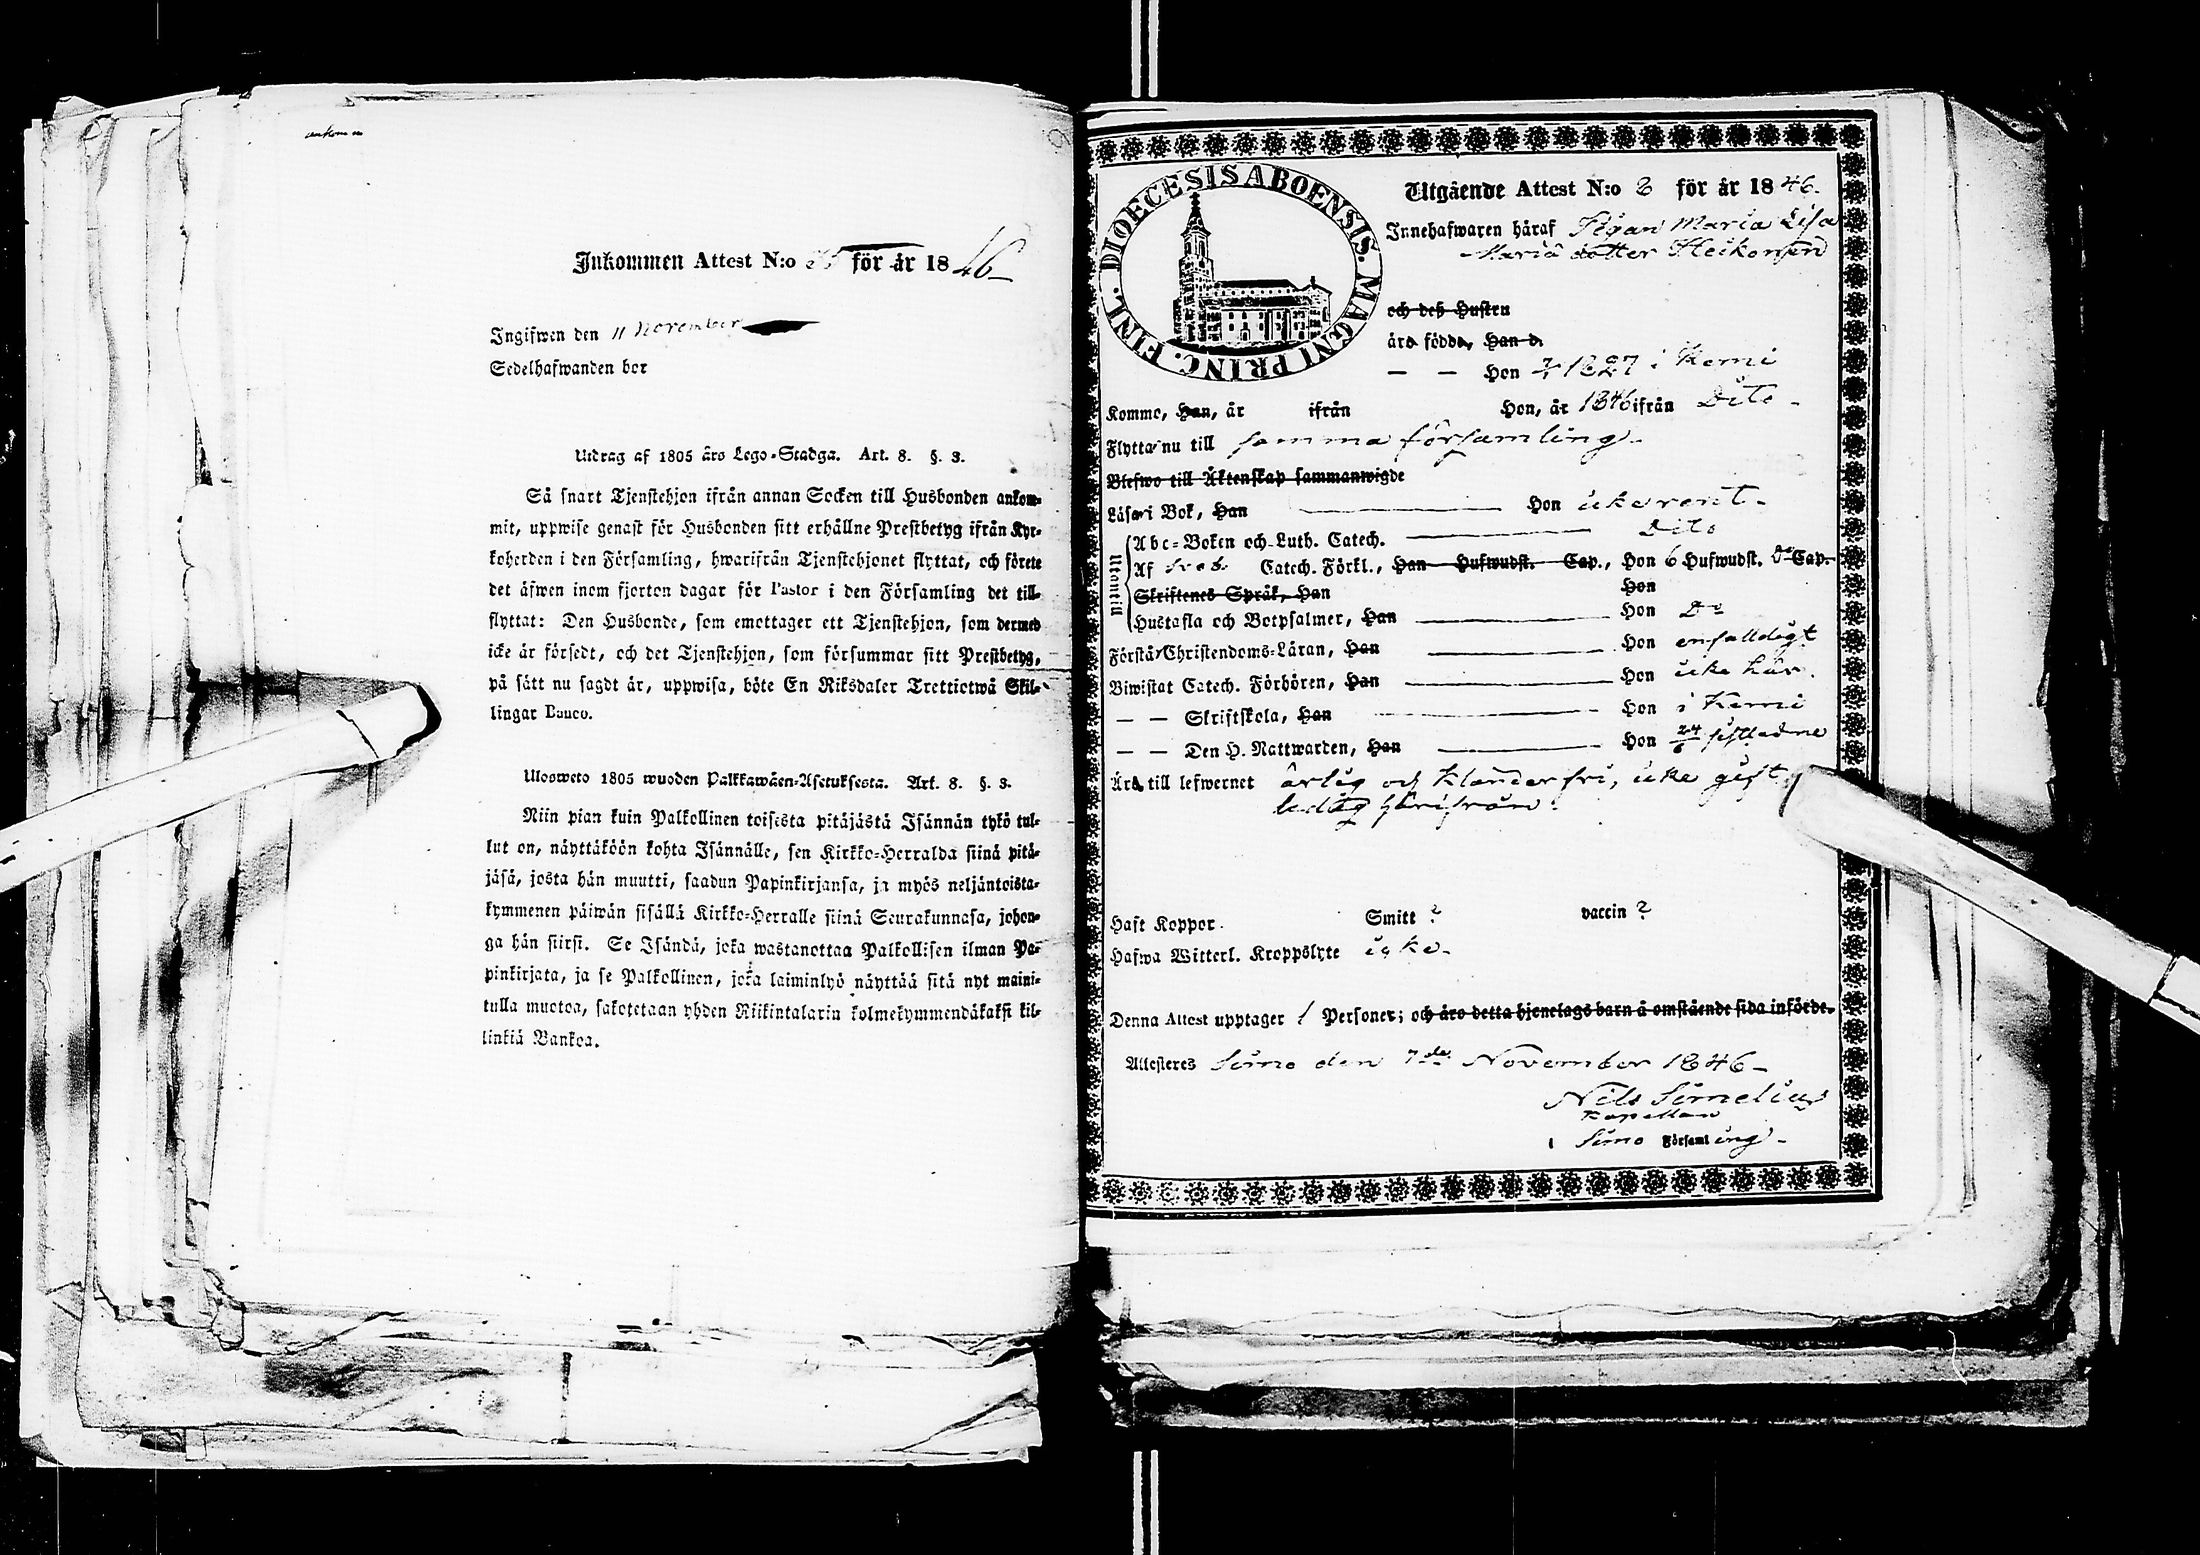 ankom
Inkommen Attest N:o för år 1846
Ingifwen den 11 November
Sedelhafwanden bor
Utdrag af 1805 års Lego-Stadga. Art. 8. §. 3.
Så snart Tjenstehjon ifrån annan Socken till Husbonden ankom-
mit, uppwise genast för Husbonden sitt erhållne Prestbetyg ifrån Kyr-
koherden i den Församling, hwarifrån Tjenstehjonet flyttat, och förete
det äfwen inom fjorton dagar för Pastor i den Församling det till-
flyttat: Den Husbonde, som emottager ett Tjenstehjon, som dermed
icke är försedt, och det Tjenstehjon, som försummar sitt Prestbetyg,
på sätt nu sagdt är, uppwisa, böte En Riksdaler Trettiotwå Skil-
lingar Banco.
Ulosweto 1805 wuoden Palkkawäen-Asetuksesta. Art. 8. §. 3.
Niin pian kuin Palkollinen toisesta pitäjästä Isännän tykö tul-
lut on, näyttäköön kohta Isännälle, sen Kirkko-Herralda siinä pitä-
jäsä, josta hän muutti, saadun Papinkirjansa, ja myös neljäntoista-
kymmenen päiwän sisällä Kirkko-Herralle siinä Seurakunnasa, johon-
ga hän siirsi. Se Isändä, joka wastanottaa Palkollisen ilman Pa-
pinkirjata, ja se Palkollinen, joka laiminlyö näyttää sitä nyt maini-
tulla muotoa, sakotetaan yhden Riikintalarin kolmekymmendäkaksi kil-
linkiä Bankoa.
DIOECESIS ABOENSIS. MAGNI PRINC. FINL.
Utgående Attest N:o för år 1846.
Innehafwaren häraf Pigan Maria Lisa
Maria dotter Heikonen
och deß Hustru
äro födde, Han d.
— — Hon 1827 i Kemi
Komne, Han, år ifrån Hon, år 1846 ifrån Dito
Flytta nu till samma församling
Blefwo till Äktenskap sammanwigde
Läsa i Bok, Han Hon icke rent
Utontill
Abc-Boken och Luth. Catech. Dito
Af Sveb. Catech. Förkl., Han Hufwudst. Cap., Hon 6 Hufwudst. Cap.
Skriftenes Språk, Han Hon
Hustafla och Botpsalmer, Han Hon Do
Förstå Christendoms-Läran, Han Hon enfalldigt
Biwistat Catech. Förhören, Han Hon icke här.
— — Skriftskola, Han Hon i Kemi
— — Den H. Nattwarden, Han Hon 24/6 sistledne
Äro till lefwernet ärlig och klanderfri, icke gift,
ledig härifrån.
Haft Koppor. Smitt ? vaccin ?
Hafwa Witterl. Kroppslyte icke
Denna Attest upptager 1 Personer; och äro detta hjonelags barn å omstående sida införde.
Attesteres Simo den 7de November 1846
Nils Simelius
Kapellan
i Simo Församling